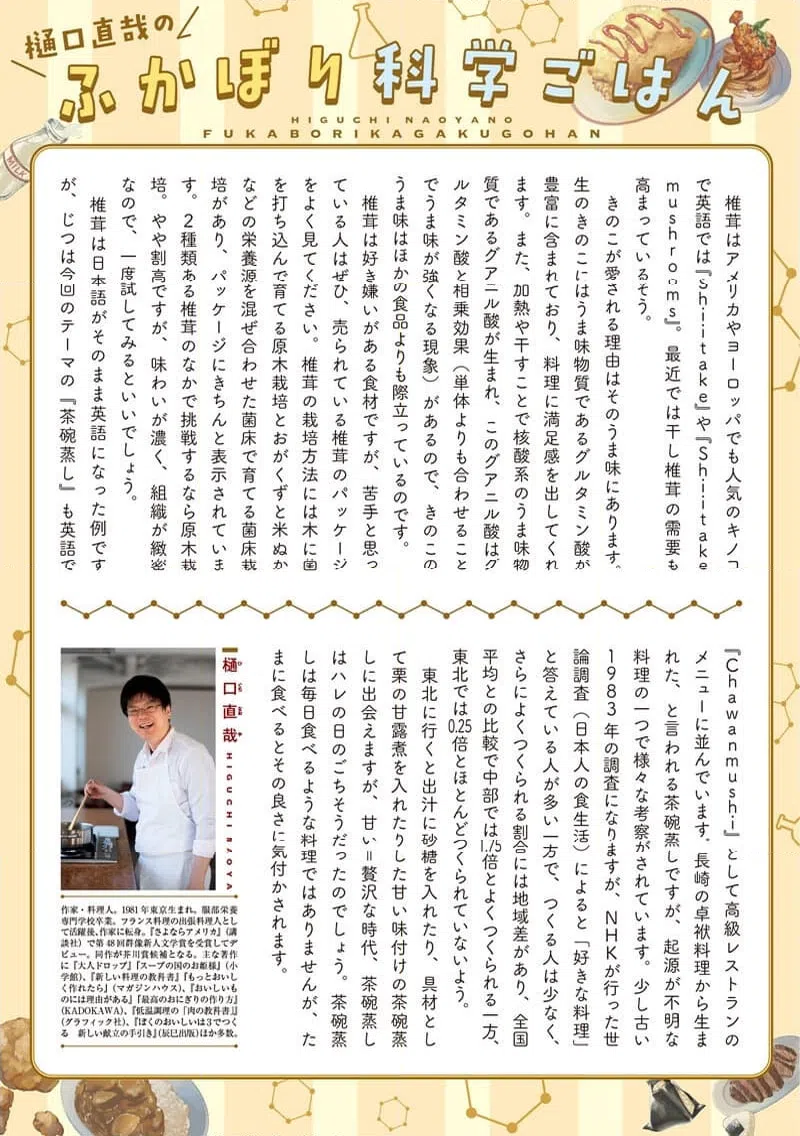 樋口直哉の
ふかぼり科学ごはん
HIGUCHI NAOYANO
FUKABORIKAGAKUGOHAN
MILK
椎茸はアメリカやヨーロッパでも人気のキノコ
で英語では『Shiitake』や『Shiitake
mushrooms』。最近では干し椎茸の需要も
高まっているそう。
きのこが愛される理由はそのうま味にあります。
生のきのこにはうま味物質であるグルタミン酸が
豊富に含まれており、料理に満足感を出してくれ
ます。また、加熱や干すことで核酸系のうま味物
質であるグアニル酸が生まれ、このグアニル酸はグ
ルタミン酸と相乗効果（単体よりも合わせること
でうま味が強くなる現象）があるので、きのこの
うま味はほかの食品よりも際立っているのです。
椎茸は好き嫌いがある食材ですが、苦手と思っ
ている人はぜひ、売られている椎茸のパッケージ
をよく見てください。椎茸の栽培方法には木に菌
を打ち込んで育てる原木栽培とおがくずと米ぬか
などの栄養源を混ぜ合わせた菌床で育てる菌床栽
培があり、パッケージにきちんと表示されていま
す。2種類ある椎茸のなかで挑戦するなら原木栽
培。やや割高ですが、味わいが濃く、組織が緻密
なので、一度試してみるといいでしょう。
椎茸は日本語がそのまま英語になった例です
が、じつは今回のテーマの『茶碗蒸し』も英語で
『Chawanmushi』として高級レストランの
メニューに並んでいます。長崎の卓袱料理から生ま
れた、と言われる茶碗蒸しですが、起源が不明な
料理の一つで様々な考察がされています。少し古い
1983年の調査になりますが、NHKが行った世
論調査（日本人の食生活）によると「好きな料理」
と答えている人が多い一方で、つくる人は少なく、
さらによくつくられる割合には地域差があり、全国
平均との比較で中部では1.75倍とよくつくられる一方、
東北では0.25倍とほとんどつくられていないよう。
東北に行くと出汁に砂糖を入れたり、具材とし
て栗の甘露煮を入れたりした甘い味付けの茶碗蒸
しに出会えますが、甘い＝贅沢な時代、茶碗蒸し
はハレの日のごちそうだったのでしょう。茶碗蒸
しは毎日食べるような料理ではありませんが、た
まに食べるとその良さに気付かされます。
樋口直哉
ひぐちなおや
HIGUCHI NAOYA
作家・料理人。1981年東京生まれ。服部栄養
専門学校卒業。フランス料理の出張料理人とし
て活躍後、作家に転身。『さよならアメリカ』（講
談社）で第48回群像新人文学賞を受賞してデ
ビュー。同作が芥川賞候補となる。主な著作
に『大人ドロップ』『スープの国のお姫様』（小
学館）、『新しい料理の教科書』『もっとおいし
く作れたら』（マガジンハウス）、『おいしいも
のには理由がある』『最高のおにぎりの作り方』
（KADOKAWA）、『低温調理の「肉の教科書」』
（グラフィック社）、『ぼくのおいしいは3でつく
る 新しい献立の手引き』（辰巳出版）ほか多数。